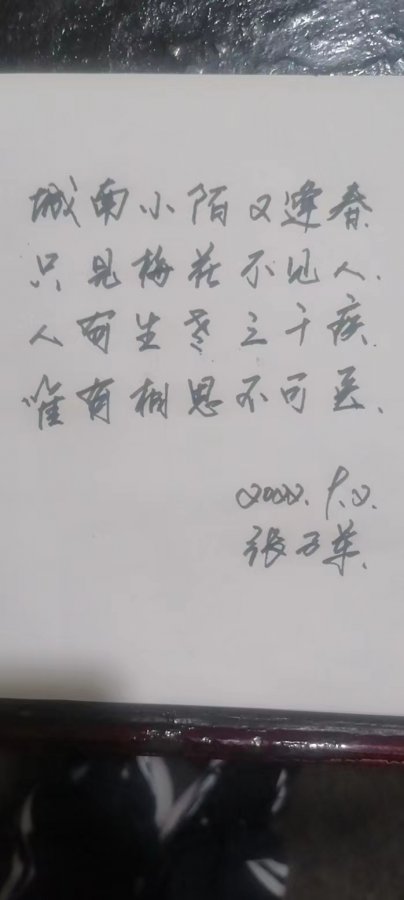 城南小陌又逢春
只见梅花不见人.
人有生老三千疾.
唯有相思不可医.
2022.9.2.
张万